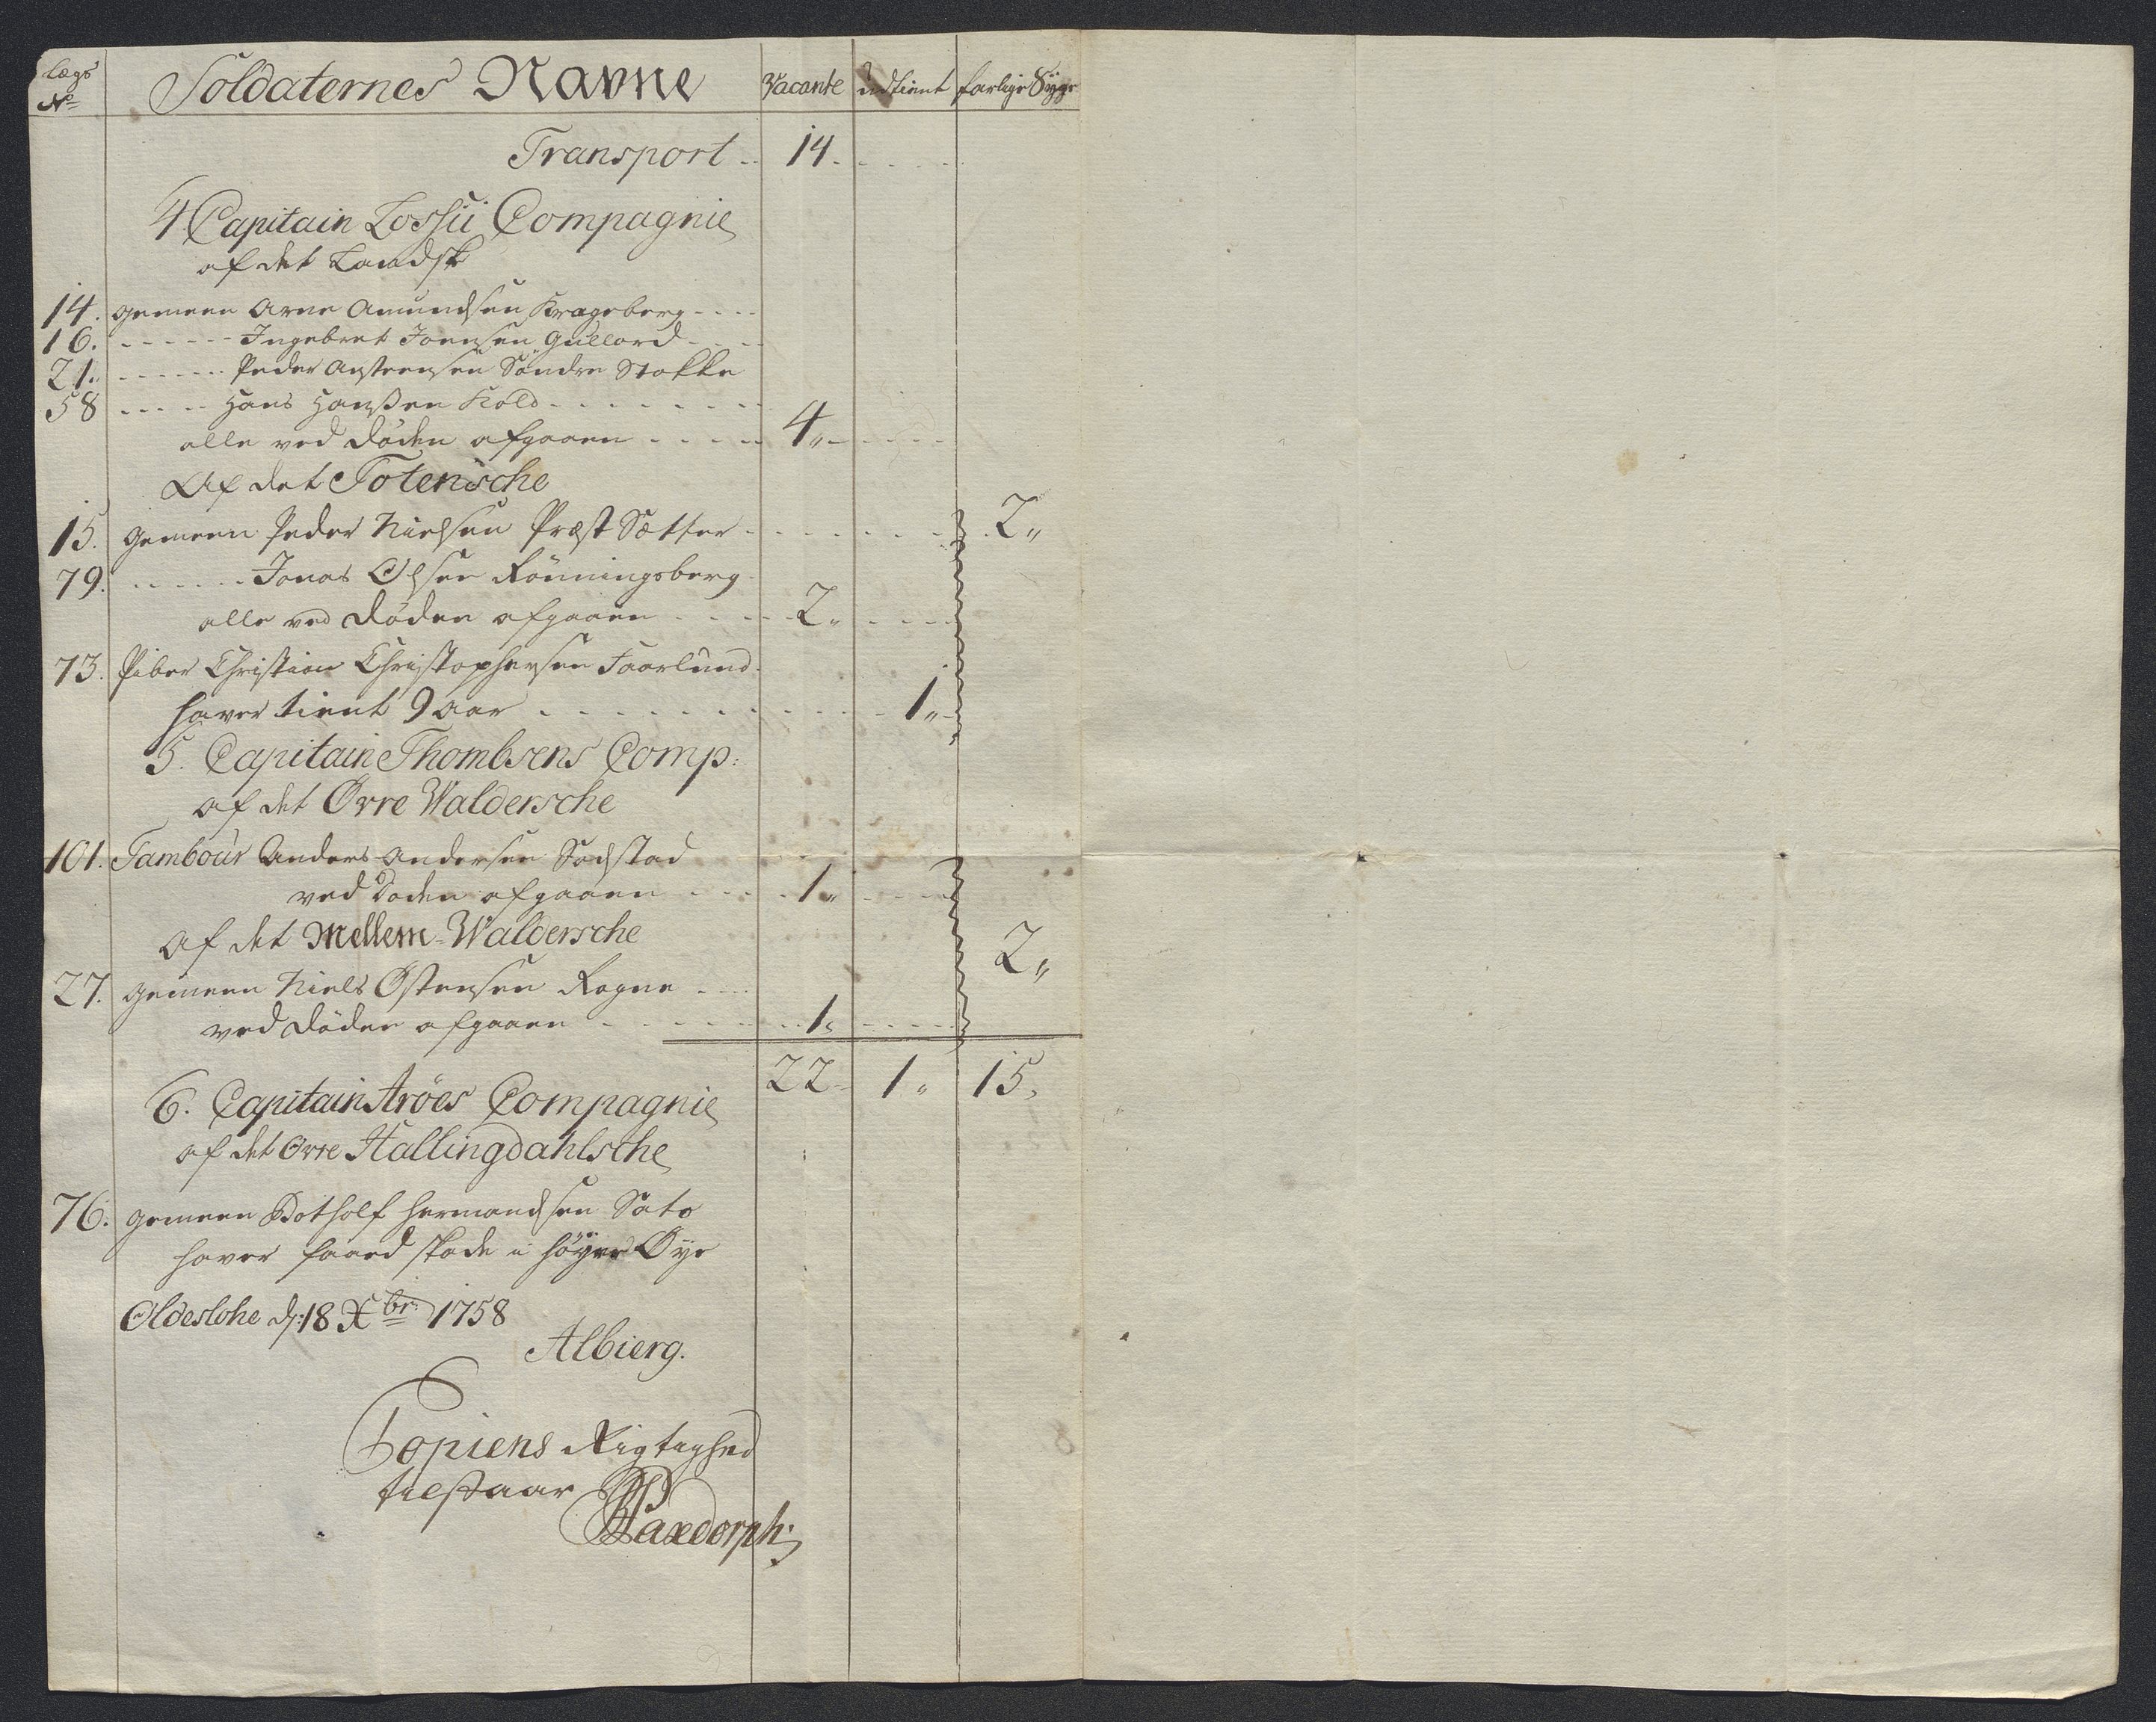 Lægs No Soldaternes Navne Vacante udtient farlige Syge
Transport 14
4 Capitain Lossii Compagnie
af det Landske
14. gemeen Arne Amundsen Krageberg
16. Ingebret Joensen Gullord
21. Peder Anstensen Søndre Stokke
58 Hans Hanssen Kold
alle ved Døden afgaaen 4
Af det Totensche
15. gemeen Peder Nielsen Præst Sætter 2
79. Jonas Olsen Rönningsberg
alle ved Døden afgaaen 2
73. Piber Christian Christophersen Faarlund
haver tient 9 aar 1
5. Capitain Thombsens Comp:
af det Øvre Waldersche
101. Tambour Anders Andersen
ved Døden afgaaen 1
af det Mellem-Waldersche 2
27. gemeen Niels Østensen Rogne
ved Døden afgaaen 1
22 1 15
6. Capitain Aröes Compagnie
af det Øvre Hallingdahlsche
76. gemeen Botholf Hermandsen Sato
haver faaed skade i höyre Øye
Oldeslohe d: 18 Xbr: 1758
Albierg.
Copiens Rigtighed
tilstaar
Waxdorph